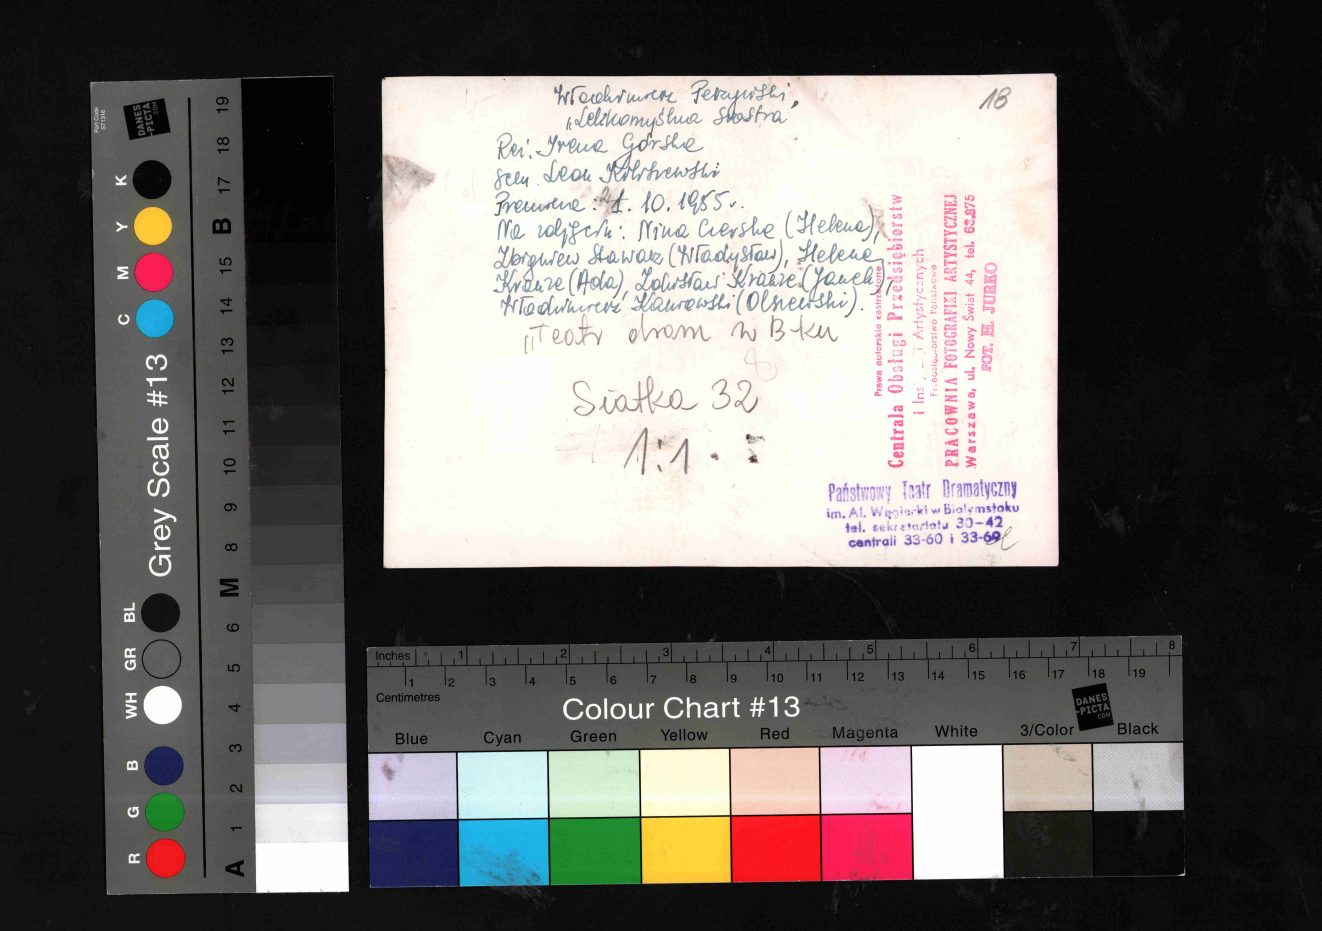 Part Code
ST1316
DANES
-PICTA
.COM
K
Y
M
C
Grey Scale #13
BL
GR
WH
B
G
R
19
18
17
B
15
14
13
12
11
10
9
8
M
6
5
4
3
2
1
A
Włodzimierz Perzyński,
„Lekkomyślna siostra"
18
Reż. Irena Górska
scen. Leon
Premiera: 21. 10. 1955 r.
Na zdjęciu: Nina Czerska (Helena),
Zbigniew Stawarz (Władysław), Helena
Krauze (Ada), Zdzisław Krauze (Janek),
Włodzimierz (Olszewski).
„Teatr dram w B-ku
Siatka 32
1:1
Prawa autorskie zastrzeżone
Centrala Obsługi Przedsiębiorstw
i Artystycznych
Przedsiębiorstwo Państwowe
PRACOWNIA FOTOGRAFIKI ARTYSTYCZNEJ
Warszawa, ul. Nowy Świat 44, tel. 68.875
FOT. H. JURKO
Państwowy Teatr Dramatyczny
im. Al. Węgierki w Białymstoku
tel. sekretariatu 30-42
centrali 33-60 i 33-69
Inches 1 2 3 4 5 6 7 8
1 2 3 4 5 6 7 8 9 10 11 12 13 14 15 16 17 18 19
Centimetres
Colour Chart #13
DANES
-PICTA
.COM
Blue Cyan Green Yellow Red Magenta White 3/Color Black